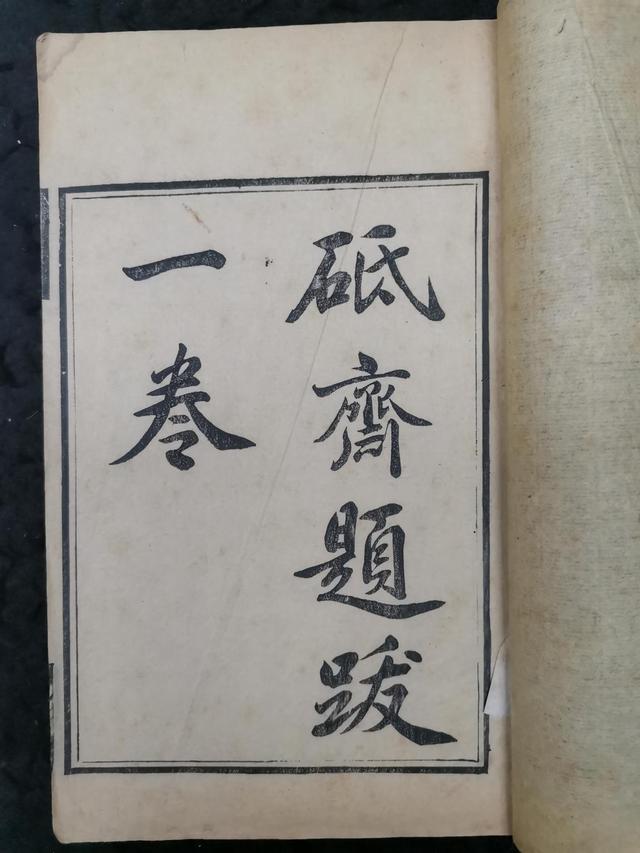 砥齋題跋
一卷